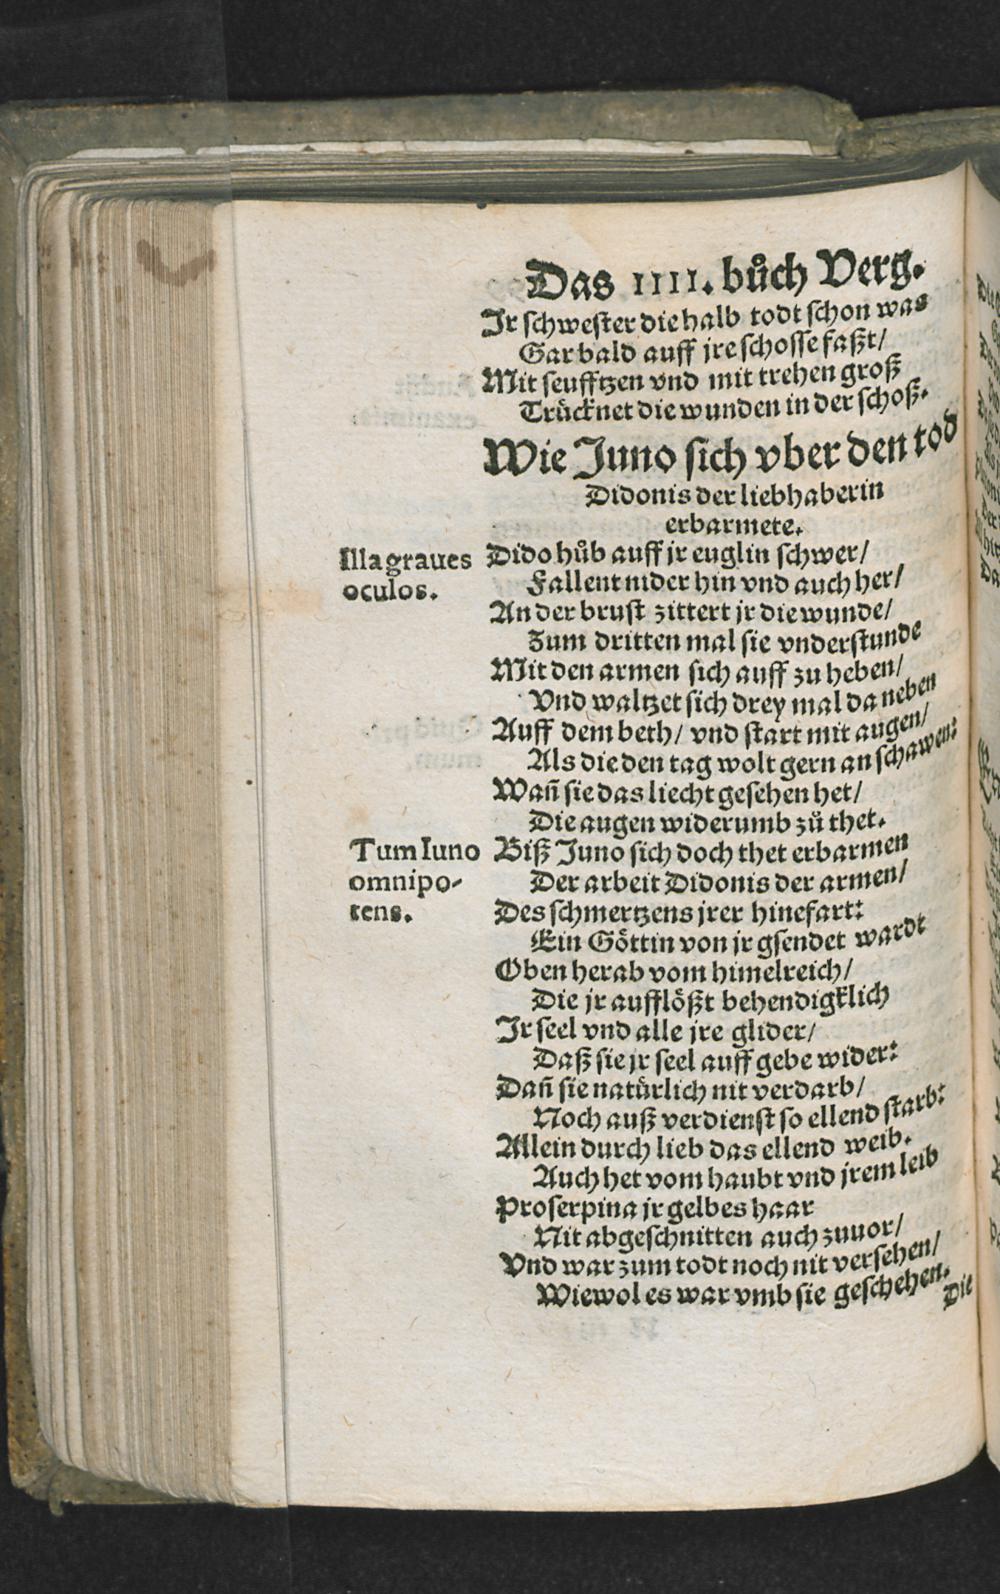 Das IIII. bůch Verg.
Jr schwester die halb todt schon was
Gar bald auff jre schosse faßt/
Mit seufftzen vnd mit trehen groß
Trücknet die wunden in der schoß.
Wie Juno sich vber den tod
Didonis der liebhaberin
erbarmete.
Illa graues
oculos.
Dido hůb auff jr euglin schwer/
Fallent nider hin vnd auch her/
An der brust zittert jr die wunde/
Zum dritten mal sie vnderstunde
Mit den armen sich auff zu heben/
Vnd waltzet sich drey mal da neben
Auff dem beth/ vnd start mit augen/
Als die den tag wolt gern an schawen:
Wañ sie das liecht gesehen het/
Die augen widerumb zů thet.
Tum Iuno
omnipo-
tens.
Biß Juno sich doch thet erbarmen
Der arbeit Didonis der armen/
Des schmertzens jrer hinefart:
Ein Göttin von jr gsendet wardt
Oben herab vom himelreich/
Die jr aufflößt behendigklich
Jr seel vnd alle jre glider/
Daß sie jr seel auff gebe wider:
Dañ sie natürlich nit verdarb/
Noch auß verdienst so ellend starb:
Allein durch lieb das ellend weib.
Auch het vom haubt vnd jrem leib
Proserpina jr gelbes haar
Nit abgeschnitten auch zuuor/
Vnd war zum todt noch nit versehen/
Wiewol es war vmb sie geschehen.
Die